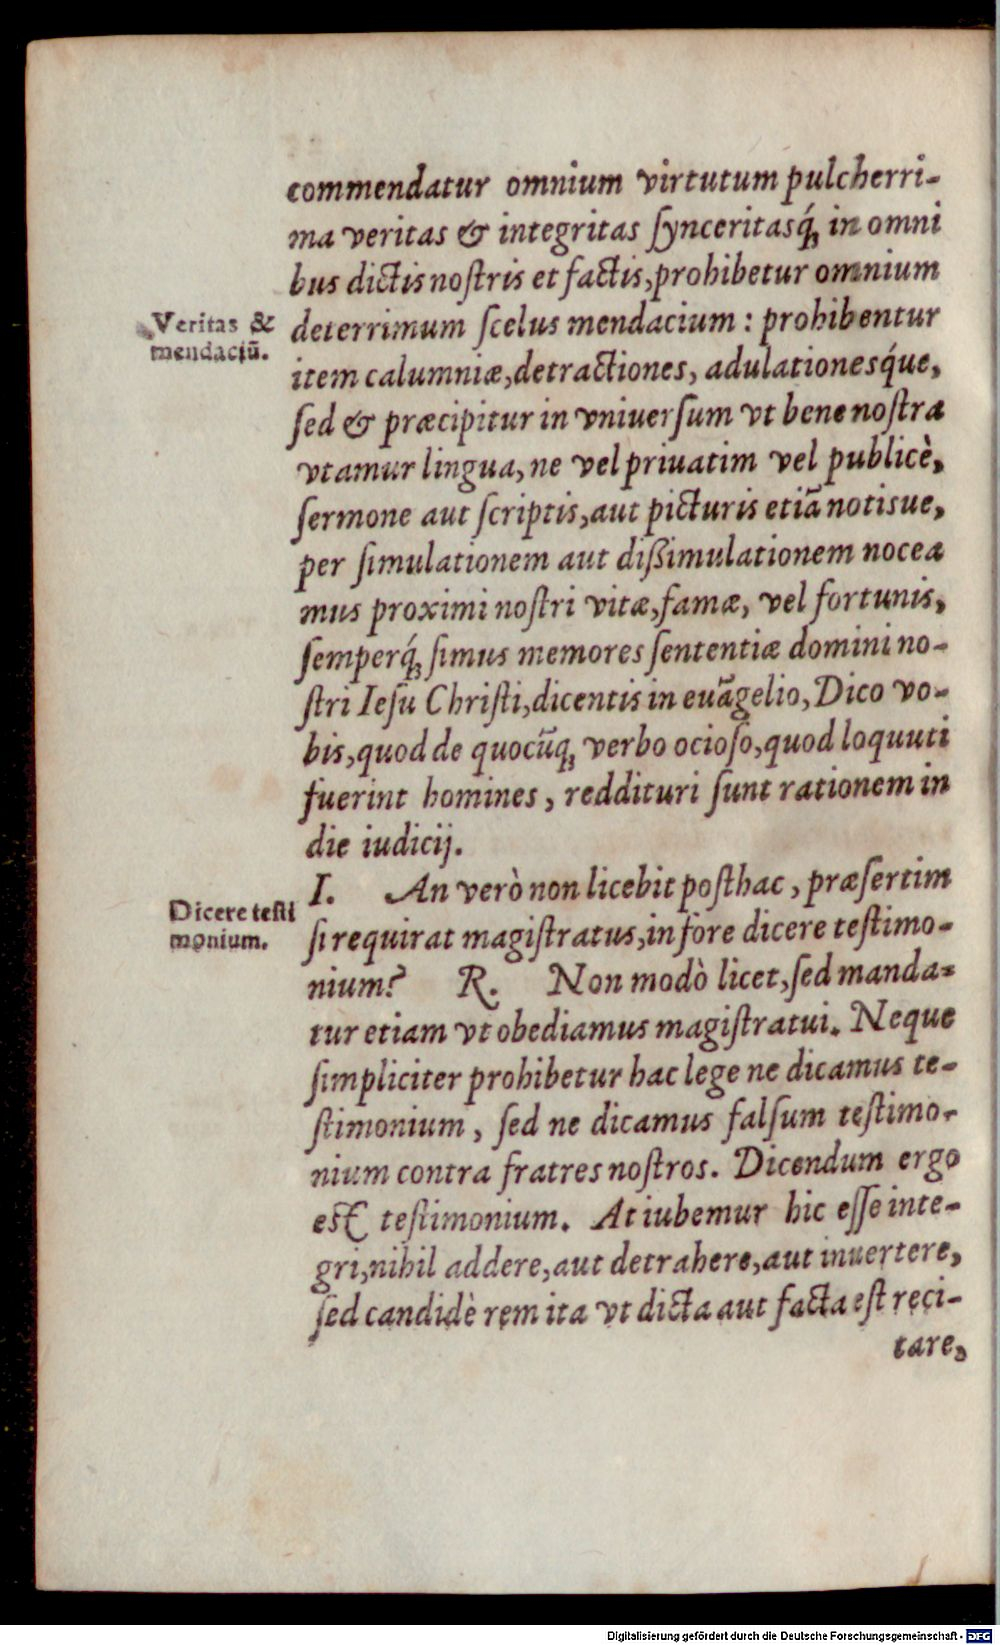 commendatur omnium virtutum pulcherri-
ma veritas & integritas ſynceritasq́; in omni
bus dictis noſtris et factis, prohibetur omnium
deterrimum ſcelus mendacium : prohibentur
Veritas &
mendaciũ.
item calumniæ, detractiones, adulationesq́ue,
ſed & præcipitur in vniuerſum vt bene noſtra
vtamur lingua, ne vel priuatim vel publicè,
ſermone aut ſcriptis, aut picturis etiã notisue,
per ſimulationem aut dißimulationem nocea
mus proximi noſtri vitæ, famæ, vel fortunis,
ſemperq́; ſimus memores ſententiæ domini no-
ſtri Ieſu Chriſti, dicentis in euãgelio, Dico vo-
bis, quod de quocũq; verbo ocioſo, quod loquuti
fuerint homines, reddituri ſunt rationem in
die iudicij.
I. An verò non licebit poſthac, præſertim
Dicere teſti
monium.
ſi requirat magiſtratus, in fore dicere teſtimo-
nium? R. Non modò licet, ſed manda-
tur etiam vt obediamus magiſtratui. Neque
ſimpliciter prohibetur hac lege ne dicamus te-
ſtimonium, ſed ne dicamus falſum teſtimo-
nium contra fratres noſtros. Dicendum ergo
est teſtimonium. At iubemur hic eſſe inte-
gri, nihil addere, aut detrahere, aut inuertere,
ſed candidè rem ita vt dicta aut facta eſt reci-
tare,
Digitalisierung gefördert durch die Deutsche Forschungsgemeinschaft - DFG